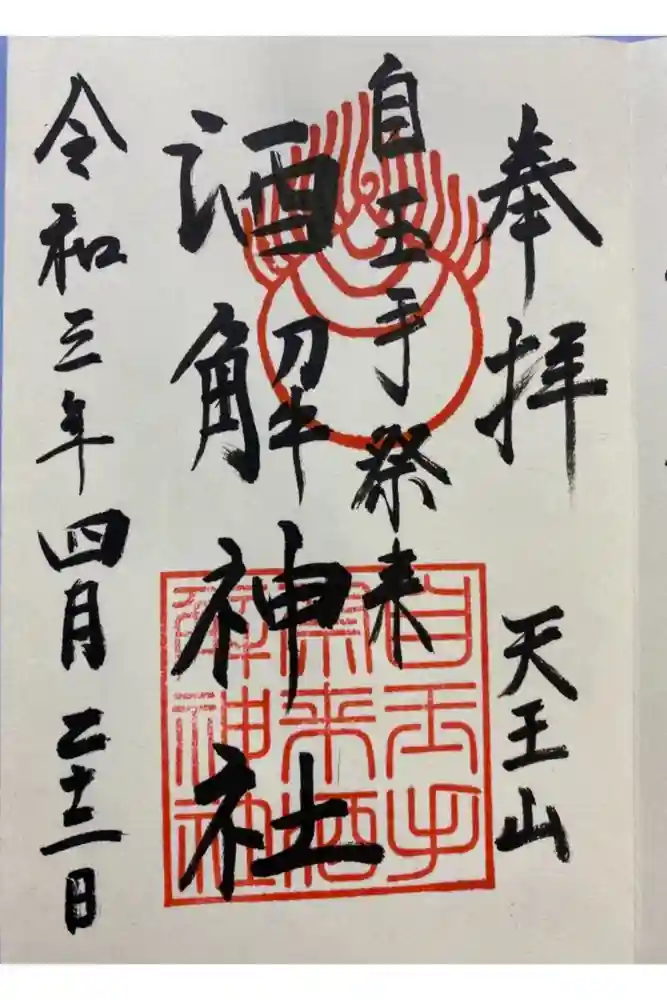 奉拝
天王山
自玉手祭来
酒解神社
令和三年四月二十三日
自玉手
祭来酒
解神社